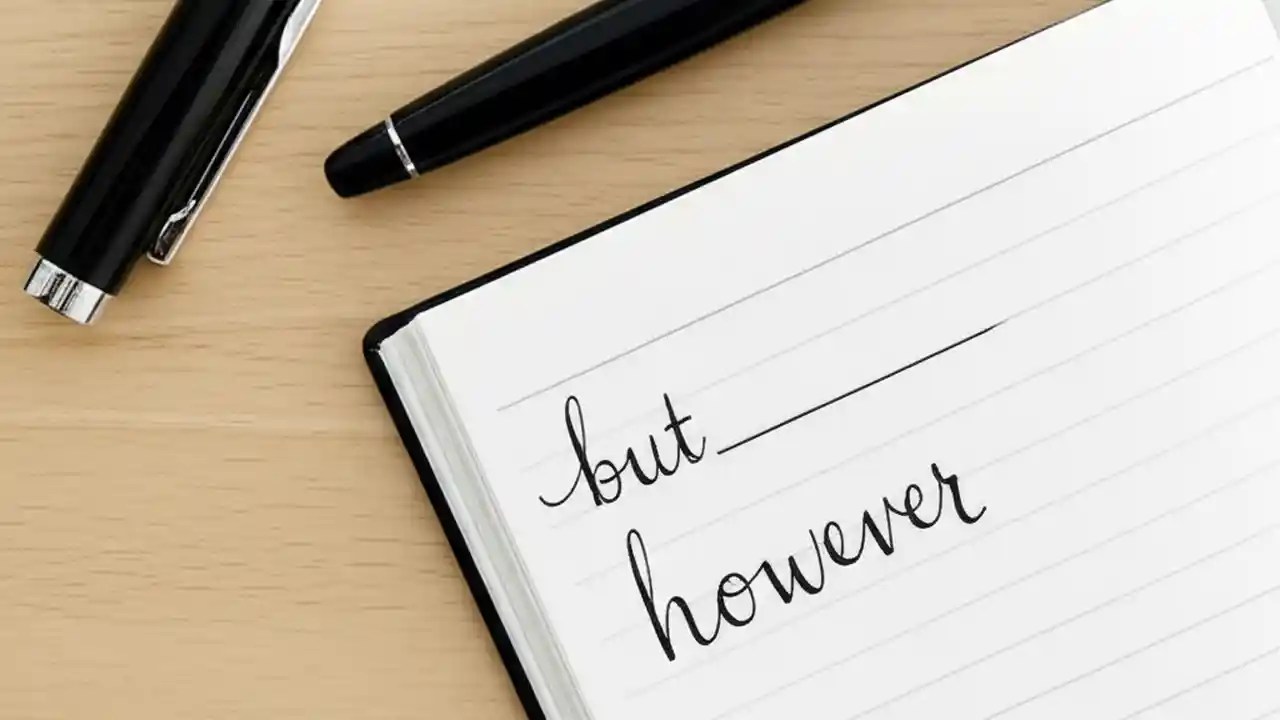 but ________
however